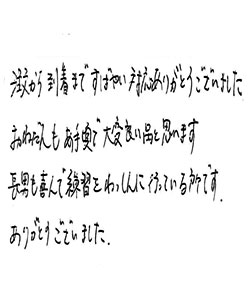 注文から到着まですばやい対応ありがとうございました
おねだんもお手頃で大変良い品と思います
長男も喜んで練習をねっしんに行っている所です.
ありがとうございました.